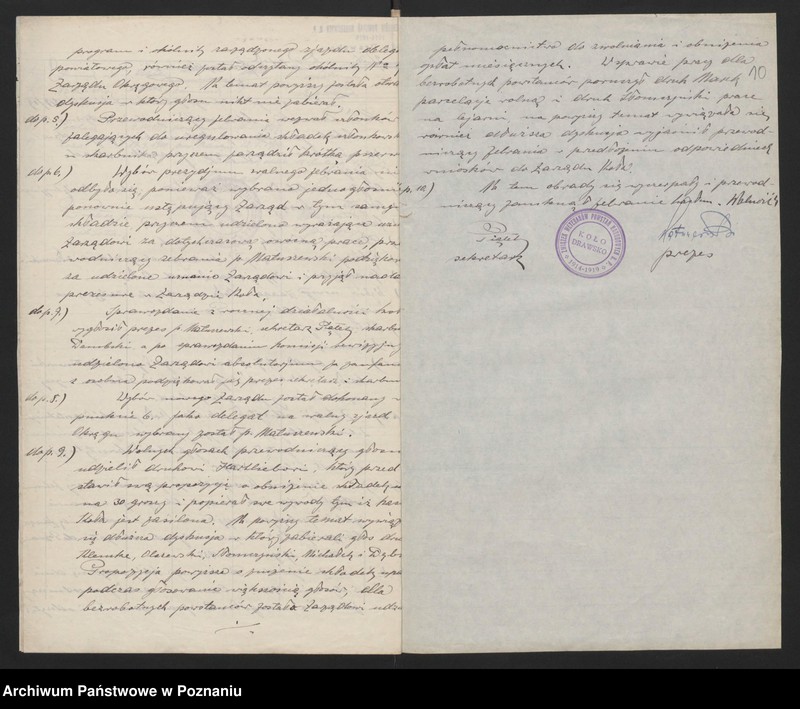 program i okólnik zarządzonego zjazdu delega
powiatowego, również został odczytany okólnik Nr 2
Zarządu Okręgowego. Na temat powyższy została otwa
dyskusja w której głosu nikt nie zabierał.
do p. 5.) Przewodniczący zebrania wezwał członków
zalegających do uregulowania składek członkowsk
u skarbnika poczem zarządził krótką przerwę
do p. 6.) Wybór prezydjum walnego zebrania nie
odbył się ponieważ wybrano jednogłośnie
ponownie ustępujący Zarząd w tym samym
składzie poczem udzielono
Zarządowi za dotychczasową owocną pracę, prze
wodniczący zebrania p. Matuszewski podziękow
za udzielone uznanie Zarządowi i przyjął nadal
prezesurę w Zarządzie Koła.
do p. 7.) Sprawozdanie z rocznej działalności koła
wygłosił prezes p. Matuszewski, sekretarz Piątek skarbn
Dembski a po sprawozdaniu komisji rewizyjnej
udzielono Zarządowi absolutorjum za zaufanie
z osobna podziękował się prezes sekretarz i skarbn
do p. 8.) Wybór nowego Zarządu został dokonany w
punkcie 6. jako delegat na walny zjazd
Okręgu wybrany został p. Matuszewski.
do p. 9.) Wolnych głosach przewodniczący głosu
udzielił druhowi Hartliebowi, który przed
stawił swą propozycję o obniżenie składek
na 30 groszy i popierał swe wywody tym iż kasa
Koła jest zasilona. Na powyższy temat wywiąz
się dłuższa dyskusja w której zabierali głos dru
Klemke, Olszewski, Słomczyński, Michałek i
Propozycja powyższa o zniżenie składek
podczas głosowania większością głosów, dla
bezrobotnych powstańców została Zarządowi udzie
pełnomocnictwa do zwolniania i obniżenia
opłat miesięcznych. W sprawie pracy dla
bezrobotnych powstańców poruszył druh
parcelację rolną i druh Słomczyński prace
na kejarni na powyższy temat wywiązała się
również dłuższa dyskusja wyjaśnił przewod-
niczący zebrania i przedłożenie odpowiednich
wniosków do Zarządu Koła.
p. 10.) Na tem obrady się wyczerpały i przewod-
niczący zamknął zebranie hasłem „Wolność"
10
Piątek
sekretarz
prezes
ZWIĄZEK WETERANÓW POWSTAŃ NARODOWYCH R. P.
KOŁO
DRAWSKO
1914-1919
Archiwum Państwowe w Poznaniu